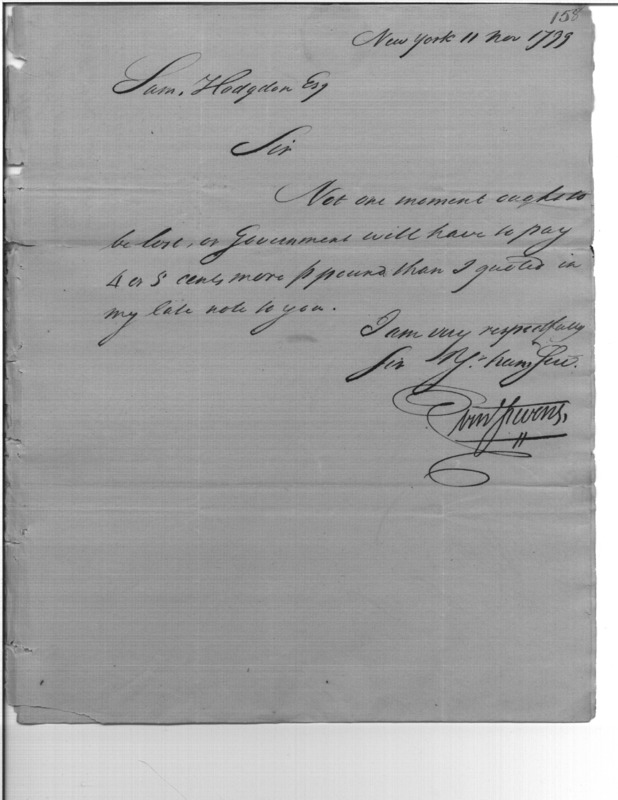 158
New York 11 Nov 1799
Sam. Hodgdon Esq
Sir
Not one moment ought to
be lost, or Government will have to pay
4 or 5 cents more p pound than I quoted in
my late note to you.
I am very respectfully
Sir Yr. hum Serv.
Stevens